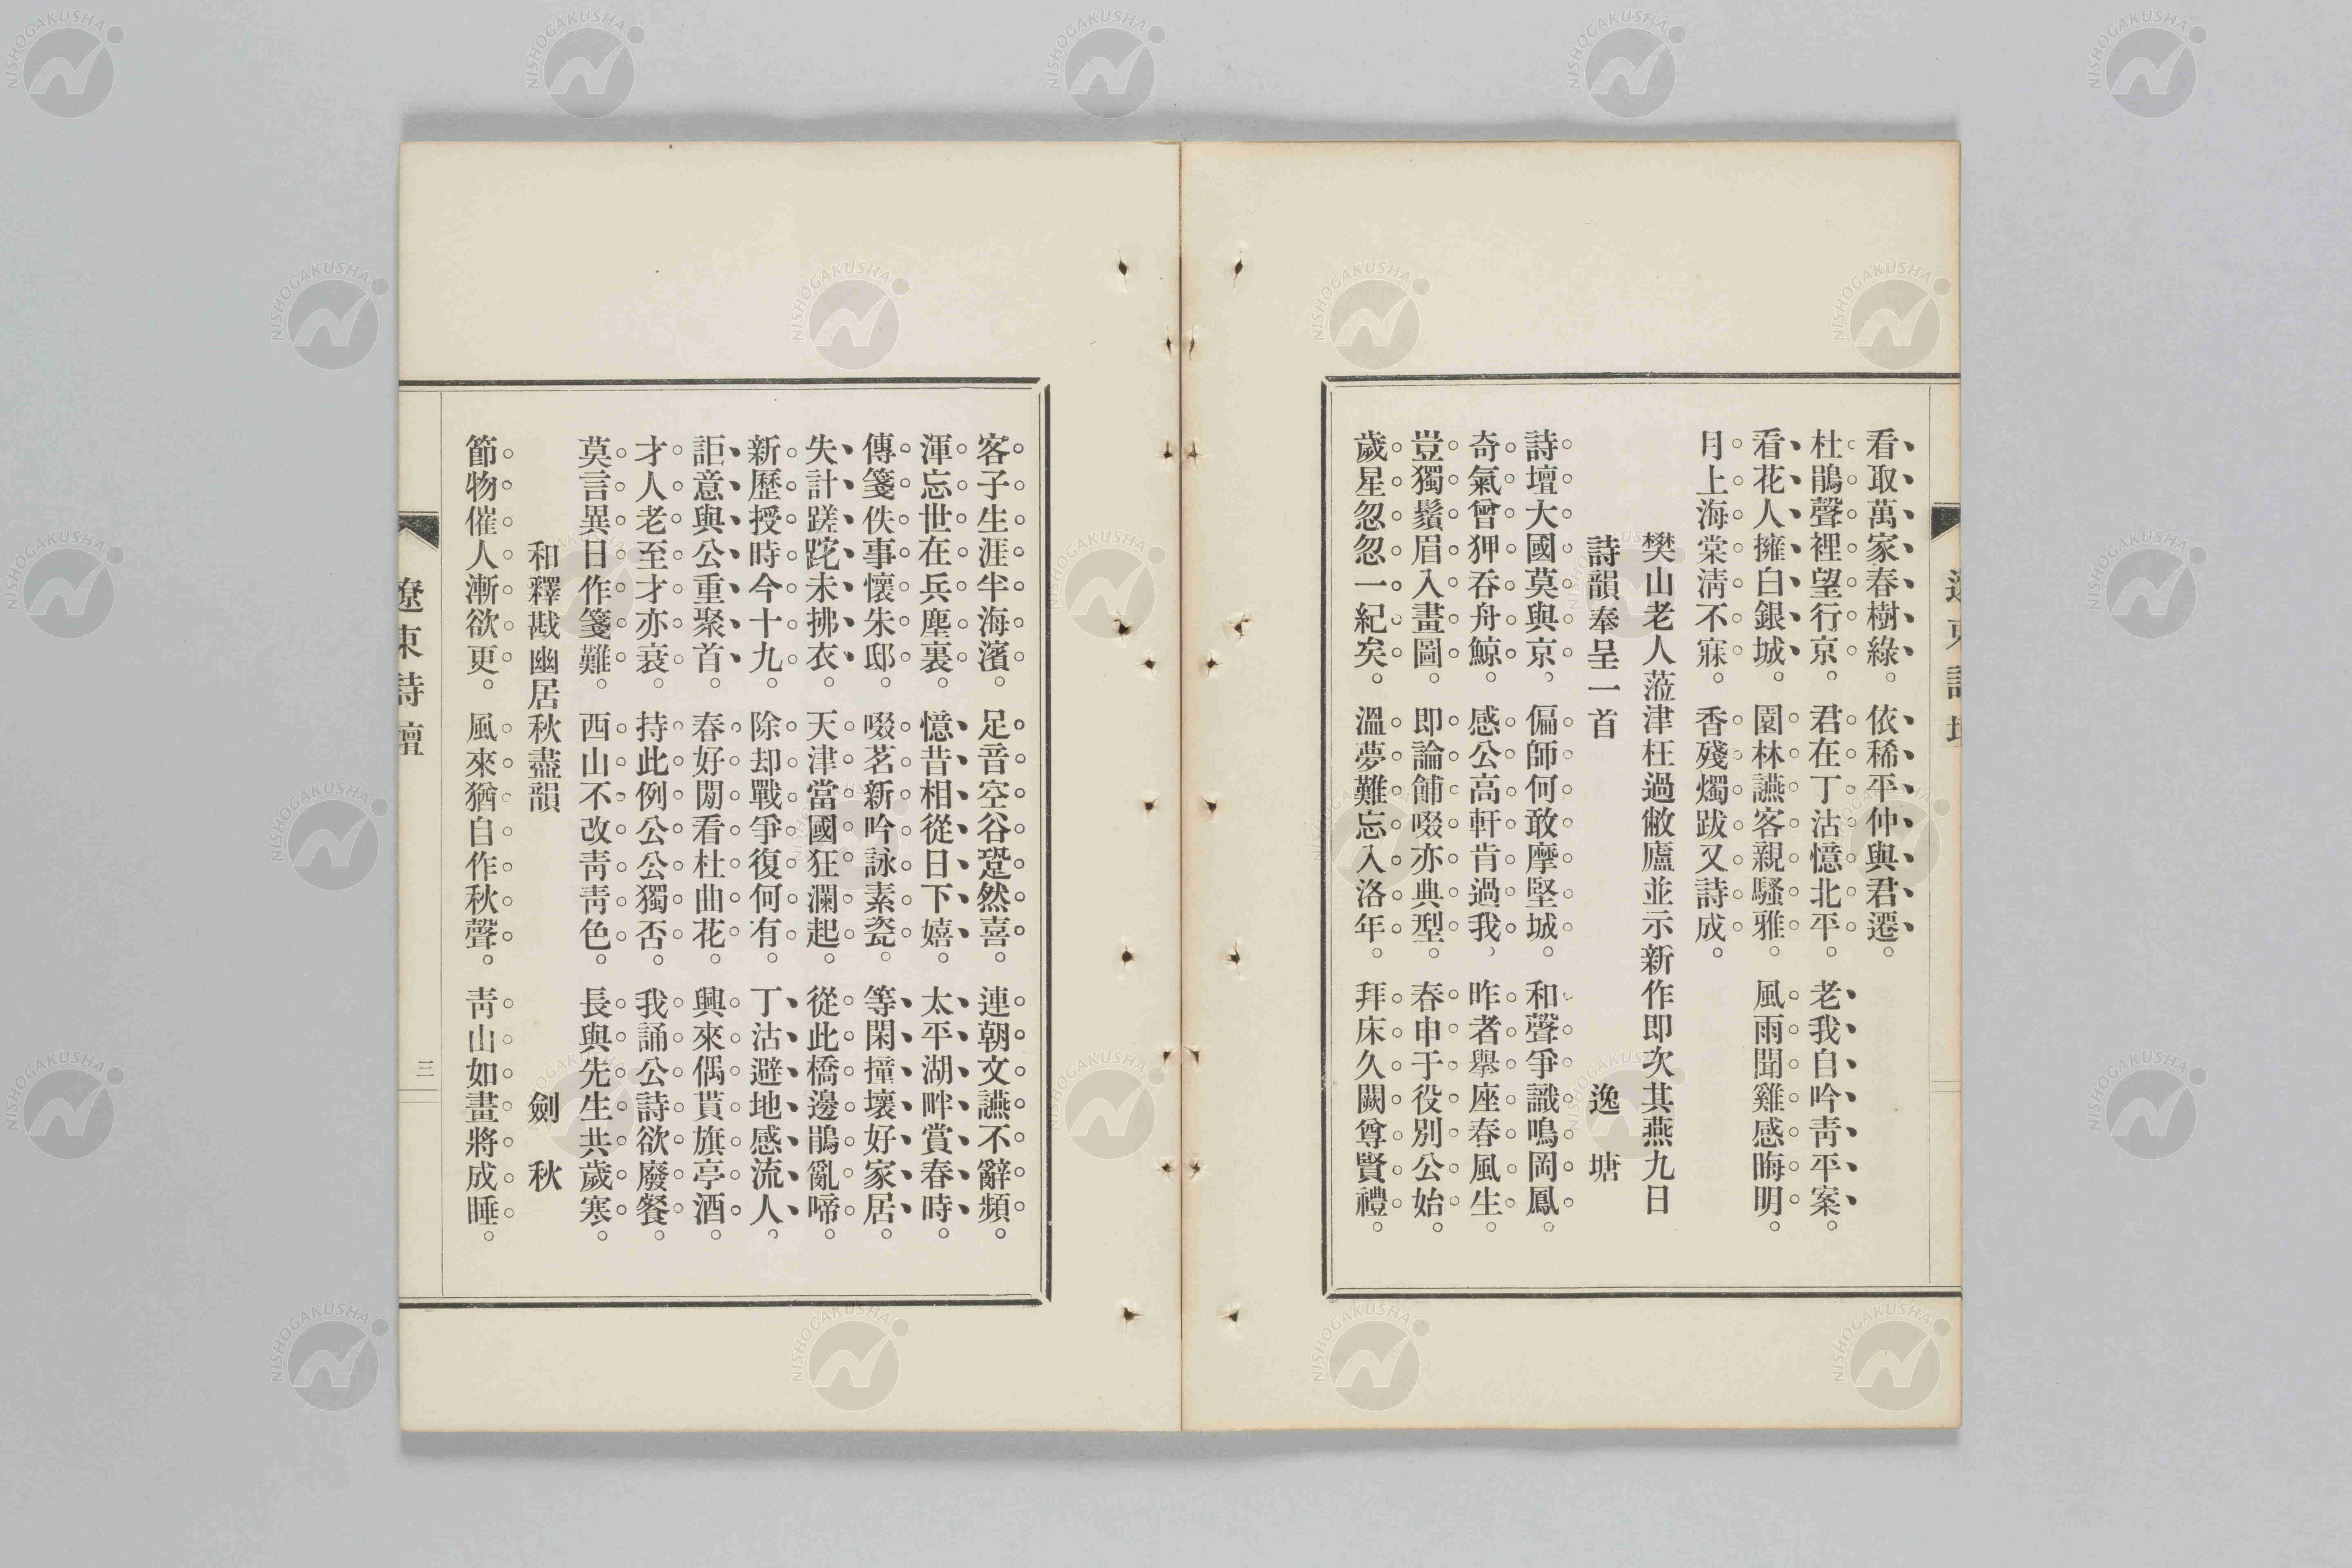 看取萬家春樹綠。依稀平仲與君遷。
杜鵑聲裡望行京。君在丁沽憶北平。老我自吟靑平案。
看花人擁白銀城。園林讌客親騷雅。風雨聞雞感晦明。
月上海棠淸不寐。香殘燭跋又詩成。
樊山老人蒞津枉過敝廬並示新作即次其燕九日
詩韻奉呈一首 逸塘
詩壇大國莫與京、偏師何敢摩堅城。和聲爭識鳴岡鳳。
奇氣曾狎吞舟鯨。感公高軒肯過我、昨者舉座春風生。
豈獨鬚眉入畫圖。即論餔啜亦典型。春申于役別公始。
歲星忽忽一紀矣。溫夢難忘入洛年。拜床久闕尊賢禮。
遼東詩壇
客子生涯半海濱。足音空谷跫然喜。連朝文讌不辭頻。
渾忘世在兵塵裏。憶昔相從日下嬉。太平湖畔賞春時。
傳箋佚事懷朱邸。啜茗新吟詠素瓷。等閑撞壞好家居。
失計蹉跎未拂衣。天津當國狂瀾起。從此橋邊鵑亂啼。
新歷授時今十九。除却戰爭復何有。丁沽避地感流人。
詎意與公重聚首。春好閒看杜曲花。興來偶貰旗亭酒。
才人老至才亦衰。持此例公公獨否。我誦公詩欲廢餐。
莫言異日作箋難。西山不改靑靑色。長與先生共歲寒。
和釋戡幽居秋盡韻 劍秋
節物催人漸欲更。風來猶自作秋聲。靑山如畫將成睡。
遼東詩壇 三
NISHOGAKUSHA